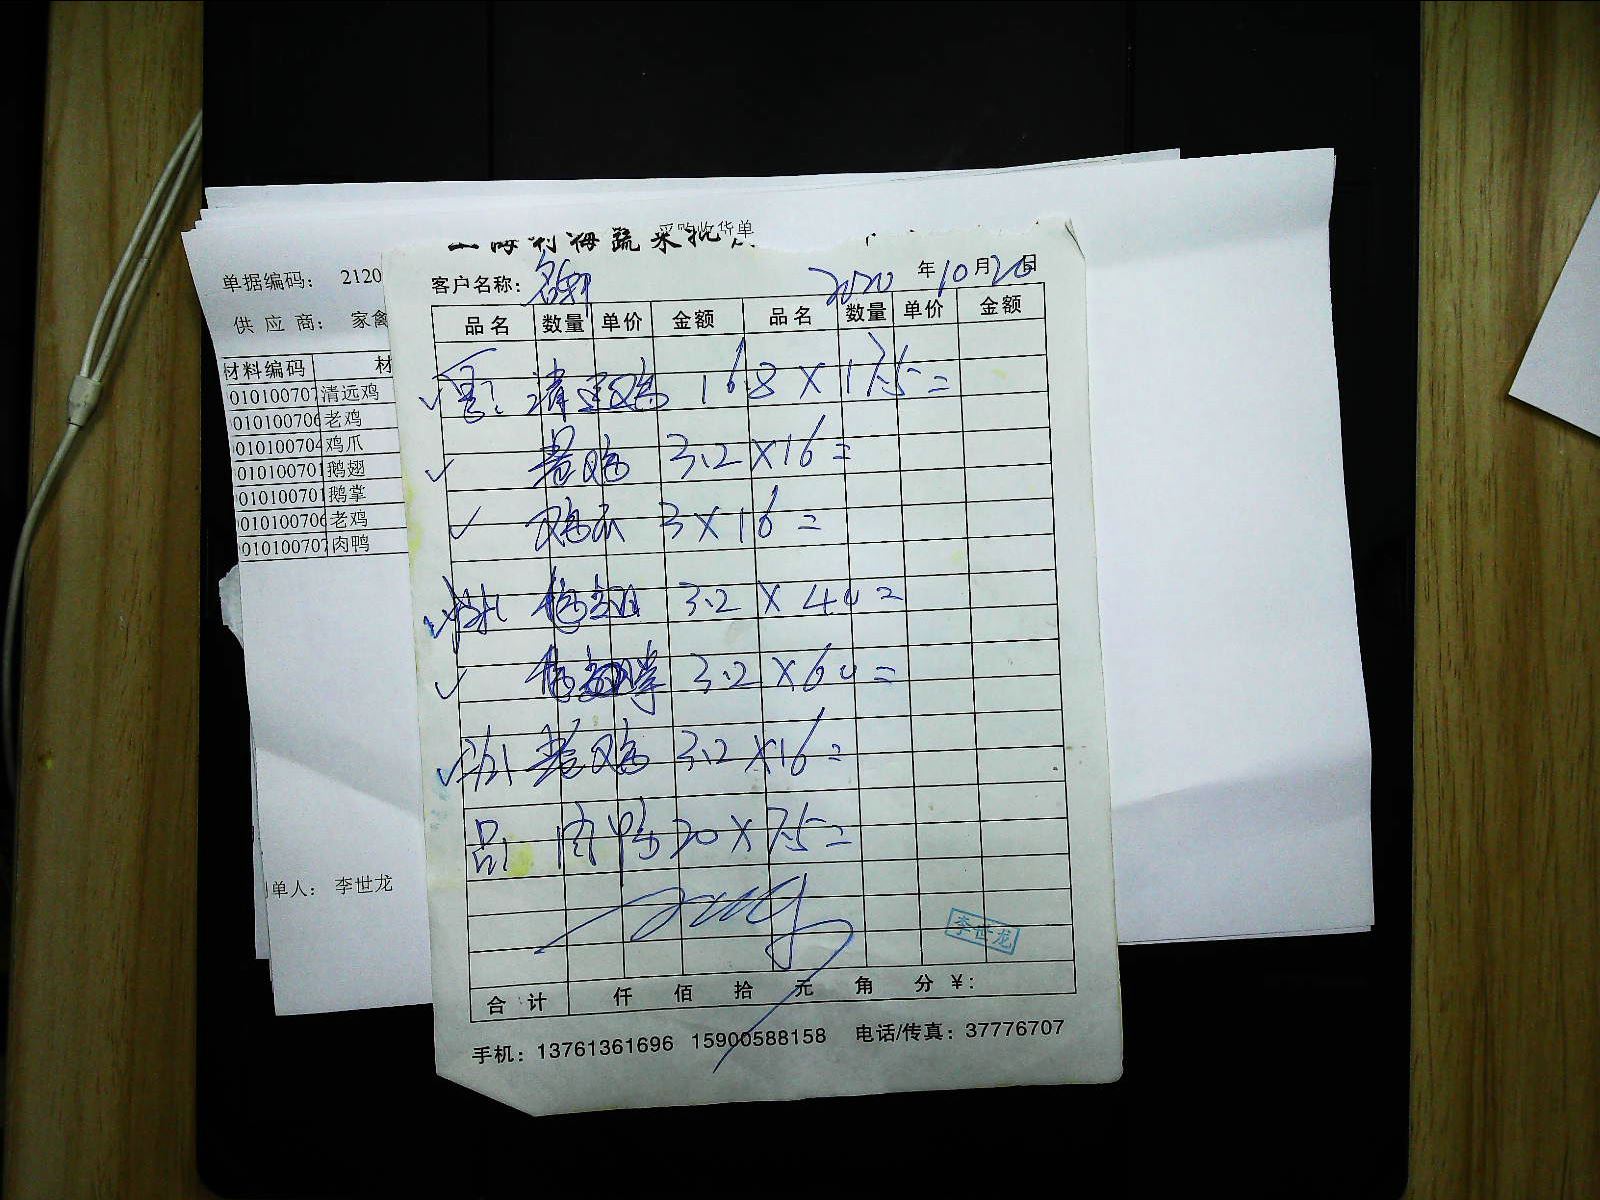 采购收货单
单据编码: 2120
供 应 商: 家禽
材料编码 材
010100707 清远鸡
010100706 老鸡
010100704 鸡爪
010100701 鹅翅
010100701 鹅掌
010100706 老鸡
010100707 肉鸭
单人: 李世龙
客户名称:
2020 年 10 月 20 日
品名 数量 单价 金额 品名 数量 单价 金额
清远鸡 16.8 × 17.5 =
老鸡 3.2 × 16 =
鸡爪 3 × 16 =
鹅翅 3.2 × 40 =
鹅掌 3.2 × 60 =
老鸡 3.2 × 16 =
肉鸭 20 × 7.5 =
李世龙
合 计 仟 佰 拾 元 角 分 ¥:
手机: 13761361696 15900588158 电话/传真: 37776707